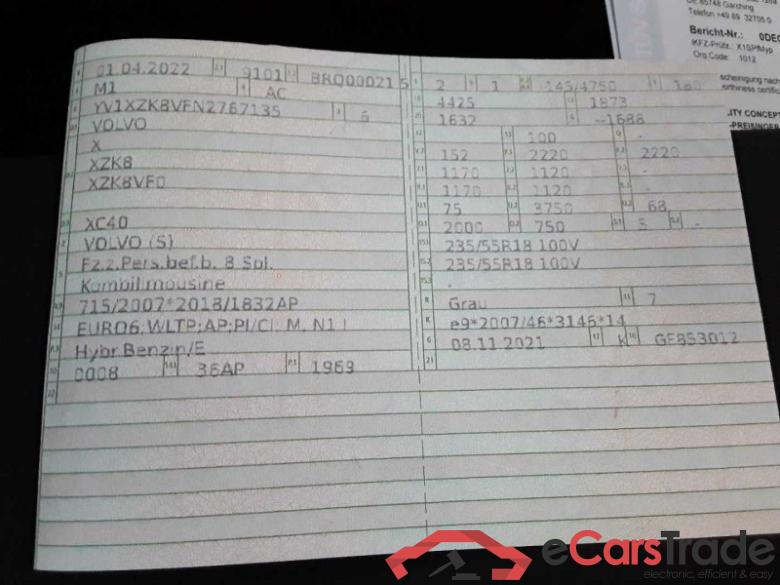 DE 85748 Garching
Telefon +49 89 32705 0
Bericht-Nr.:
Org.Code: 1012
01.04.2022 9101 BRQ00021 5
M1 AC
YV1XZK8VFN2767135 6
VOLVO
X
XZK8
XZK8VF0
XC40
VOLVO (S)
Fz.z.Pers.bef.b. 8 Spl.
Kombilimousine
715/2007*2018/1832AP
EURO6;WLTP;AP;PI/CI; M, N1 I
Hybr.Benzin/E
0008 36AP 1969
2 1 145/4750 180
4425 1873
1632 --1688
100 -
152 2220 2220
1170 1120 -
1170 1120 -
75 3750 68
2000 750 5 -
235/55R18 100V
235/55R18 100V
-
Grau 7
e9*2007/46*3146*14
08.11.2021 K GE853012
eCarsTrade
electronic, efficient & easy